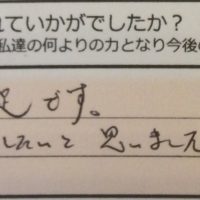 れていかがでしたか？
私達の何よりの力となり今後の
足です。
したいと思いました